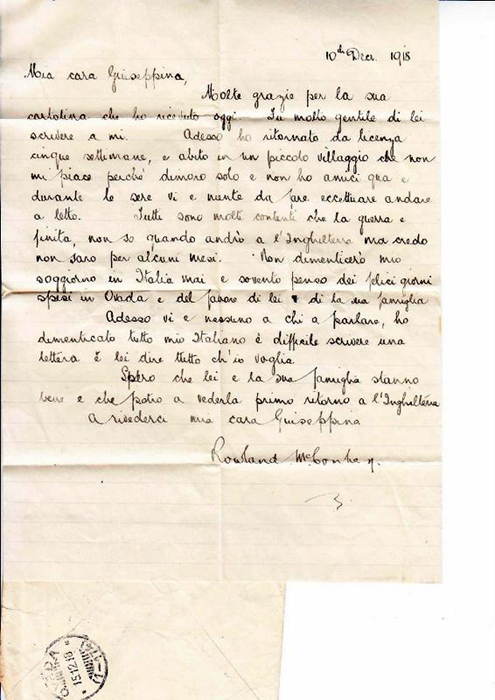 10th Decr. 1918
Mia cara Giuseppina,
Molte grazie per la sua
cartolina che ho ricevuto oggi. Fu molto gentile di lei
scrivere a mi. Adesso ho ritornato da licenza
cinque settimane, e abito in un piccolo villaggio che non
mi piace perchè dimoro solo e non ho amici qua e
durante le sere vi e niente da fare eccettuare andare
a letto. Tutti sono molti contenti che la guerra e
finita, non so quando andrò a l'Inghilterra ma credo
non saro per alcuni mesi. Non dimenticerò mio
soggiorno in Italia mai e sovento penso dei felici giorni
spesi in Ovada e del favore di lei di la sua famiglia
Adesso vi e nessuno a chi a parlare, ho
dimenticato tutto mio Italiano è difficile scrivere una
lettera è lei dire tutto ch'io voglia.
Spero che lei e la sua famiglia stanno
bene e che potro a vederla primo ritorno a l'Inghilterra
A rivederci mia cara Giuseppina
Rowland
15.12.18